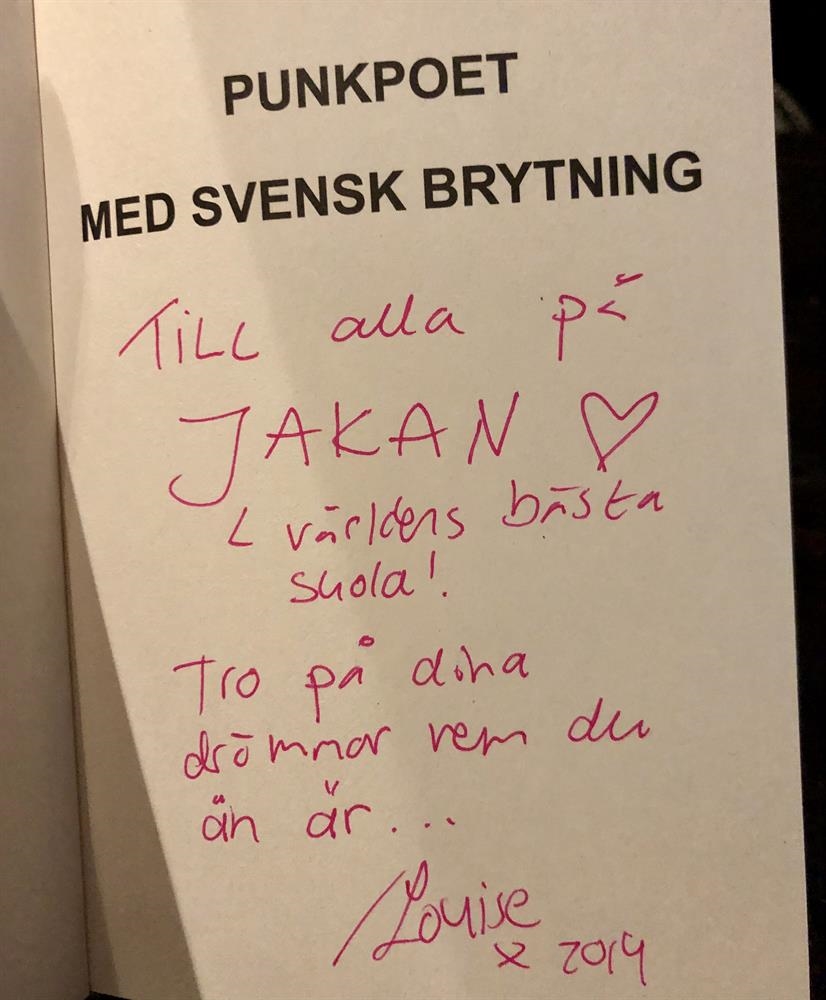 PUNKPOET
MED SVENSK BRYTNING
Till alla på
JAKAN ♡
< världens bästa
skola!
Tro på dina
drömmar vem du
än är...
/Louise
x 2019